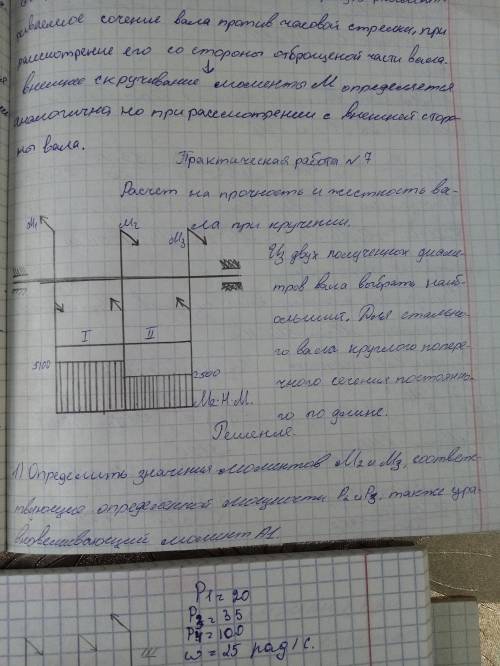 сиваемое сечение вала против часовой стрелки, при
рассмотрение его со стороны отвращеной части вала.
Внешнее скручивание моменты М определяется
аналогична но при рассмотрении с внешней сторо-
ны вала.
Практическая работа N 7
Расчет на прочность и жесткость ва-
ла при кручении.
M1
M2
M3
Из двух полученных диаме-
тров вала выбрать наиб-
ольший. Для стально-
го вала круглого попере-
чного сечения постоянно-
го по длине.
I
II
5100
2500
Mz·H·M.
Решение.
1) Определить значения моментов M2 и M3, соответс-
твующие определенной мощности P2 и P3. также ура-
вновешивающий момент A1.
P1=20
=35
=100
ω=25 рад/с.